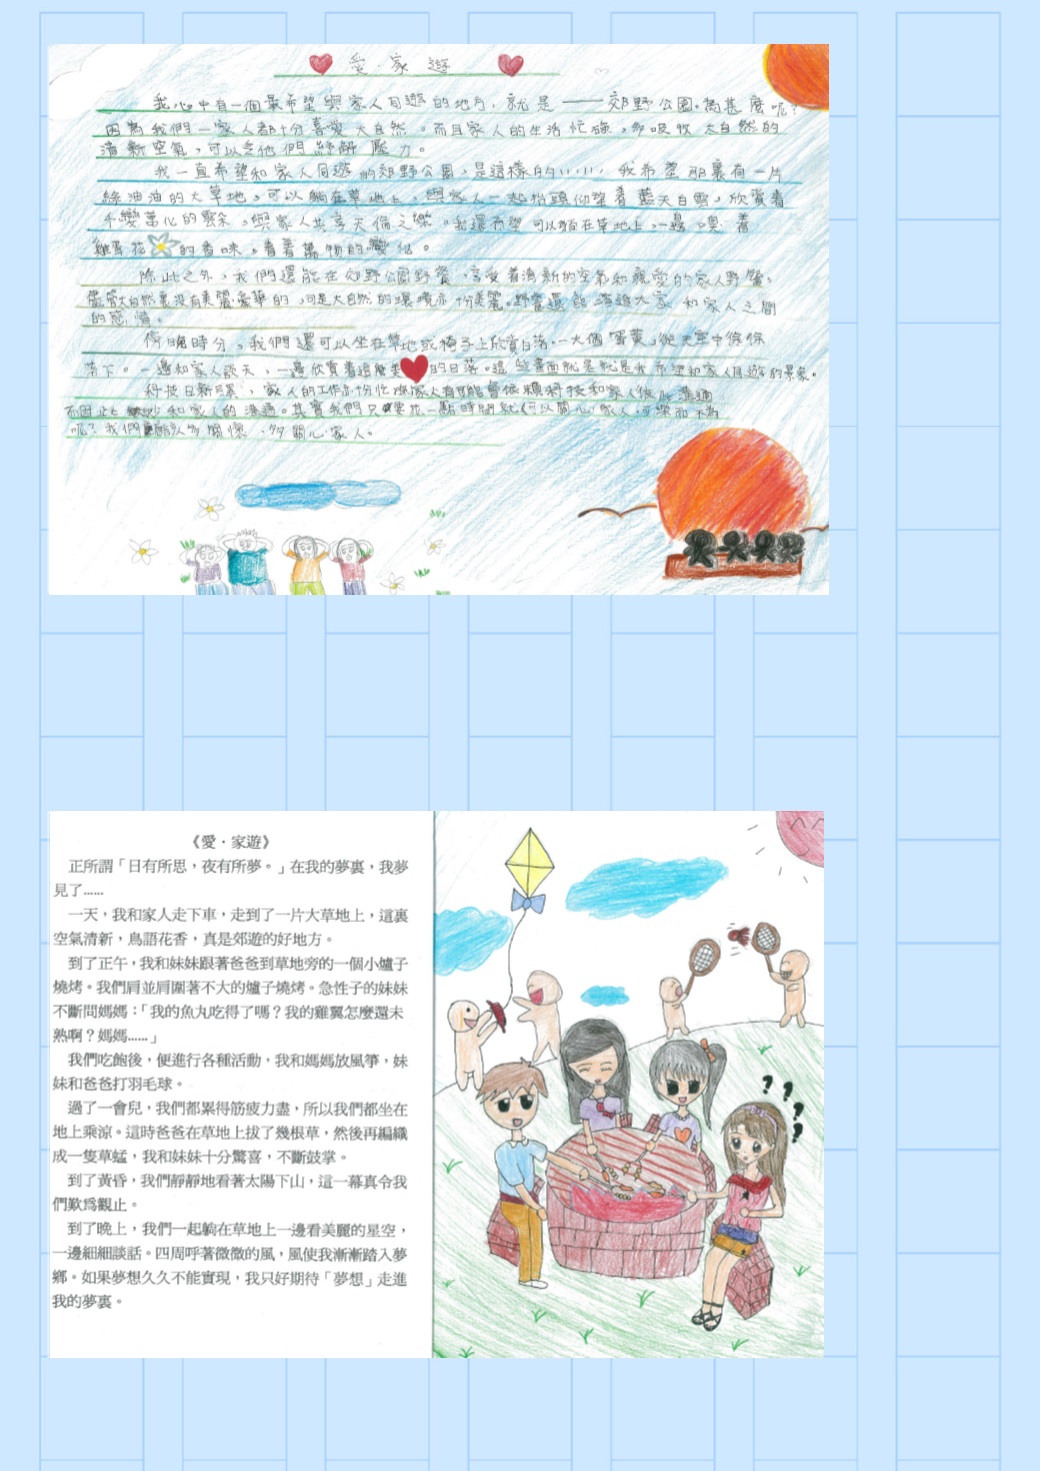 愛·家遊
我心中有一個最希望與家人同遊的地方，就是——郊野公園。為甚麼呢？
因為我們一家人都十分喜愛大自然。而且家人的生活忙碌，多吸收大自然的
清新空氣，可以令他們紓解壓力。
我一直希望和家人同遊的郊野公園，是這樣的……我希望那裏有一片
綠油油的大草地，可以躺在草地上，與家人一起抬頭仰望着藍天白雲，欣賞着
千變萬化的雲朵，與家人共享天倫之樂。我還希望可以躺在草地上，一邊嗅着
雞蛋花的香味，看着萬物的變化。
除此之外，我們還能在郊野公園野餐，享受着清新的空氣和親愛的家人野餐。
儘管大自然裏沒有美麗豪華的，可是大自然的環境亦十分美麗。野餐還能增進大家和家人之間
的感情。
傍晚時分，我們還可以坐在草地或椅子上欣賞日落。一大個「蛋黃」從天空中徐徐
落下。一邊和家人談天，一邊欣賞着這麼美的日落。這些畫面就是就是我希望和家人同遊的景象。
科技日新月異，家人的工作亦十分忙碌家人有可能會依賴科技和家人彼此溝通
而因此減少和家人的溝通。其實我們只要花一點時間就可以關心家人，何樂而不為
呢？我們應該多關懷、多關心家人。
《愛·家遊》
正所謂「日有所思，夜有所夢。」在我的夢裏，我夢
見了……
一天，我和家人走下車，走到了一片大草地上，這裏
空氣清新，鳥語花香，真是郊遊的好地方。
到了正午，我和妹妹跟著爸爸到草地旁的一個小爐子
燒烤。我們肩並肩圍著不大的爐子燒烤。急性子的妹妹
不斷問媽媽：「我的魚丸吃得了嗎？我的雞翼怎麼還未
熟啊？媽媽……」
我們吃飽後，便進行各種活動，我和媽媽放風箏，妹
妹和爸爸打羽毛球。
過了一會兒，我們都累得筋疲力盡，所以我們都坐在
地上乘涼。這時爸爸在草地上拔了幾根草，然後再編織
成一隻草蜢，我和妹妹十分驚喜，不斷鼓掌。
到了黃昏，我們靜靜地看著太陽下山，這一幕真令我
們歎爲觀止。
到了晚上，我們一起躺在草地上一邊看美麗的星空，
一邊細細談話。四周呼著微微的風，風使我漸漸踏入夢
鄉。如果夢想久久不能實現，我只好期待「夢想」走進
我的夢裏。
? ? ? ?